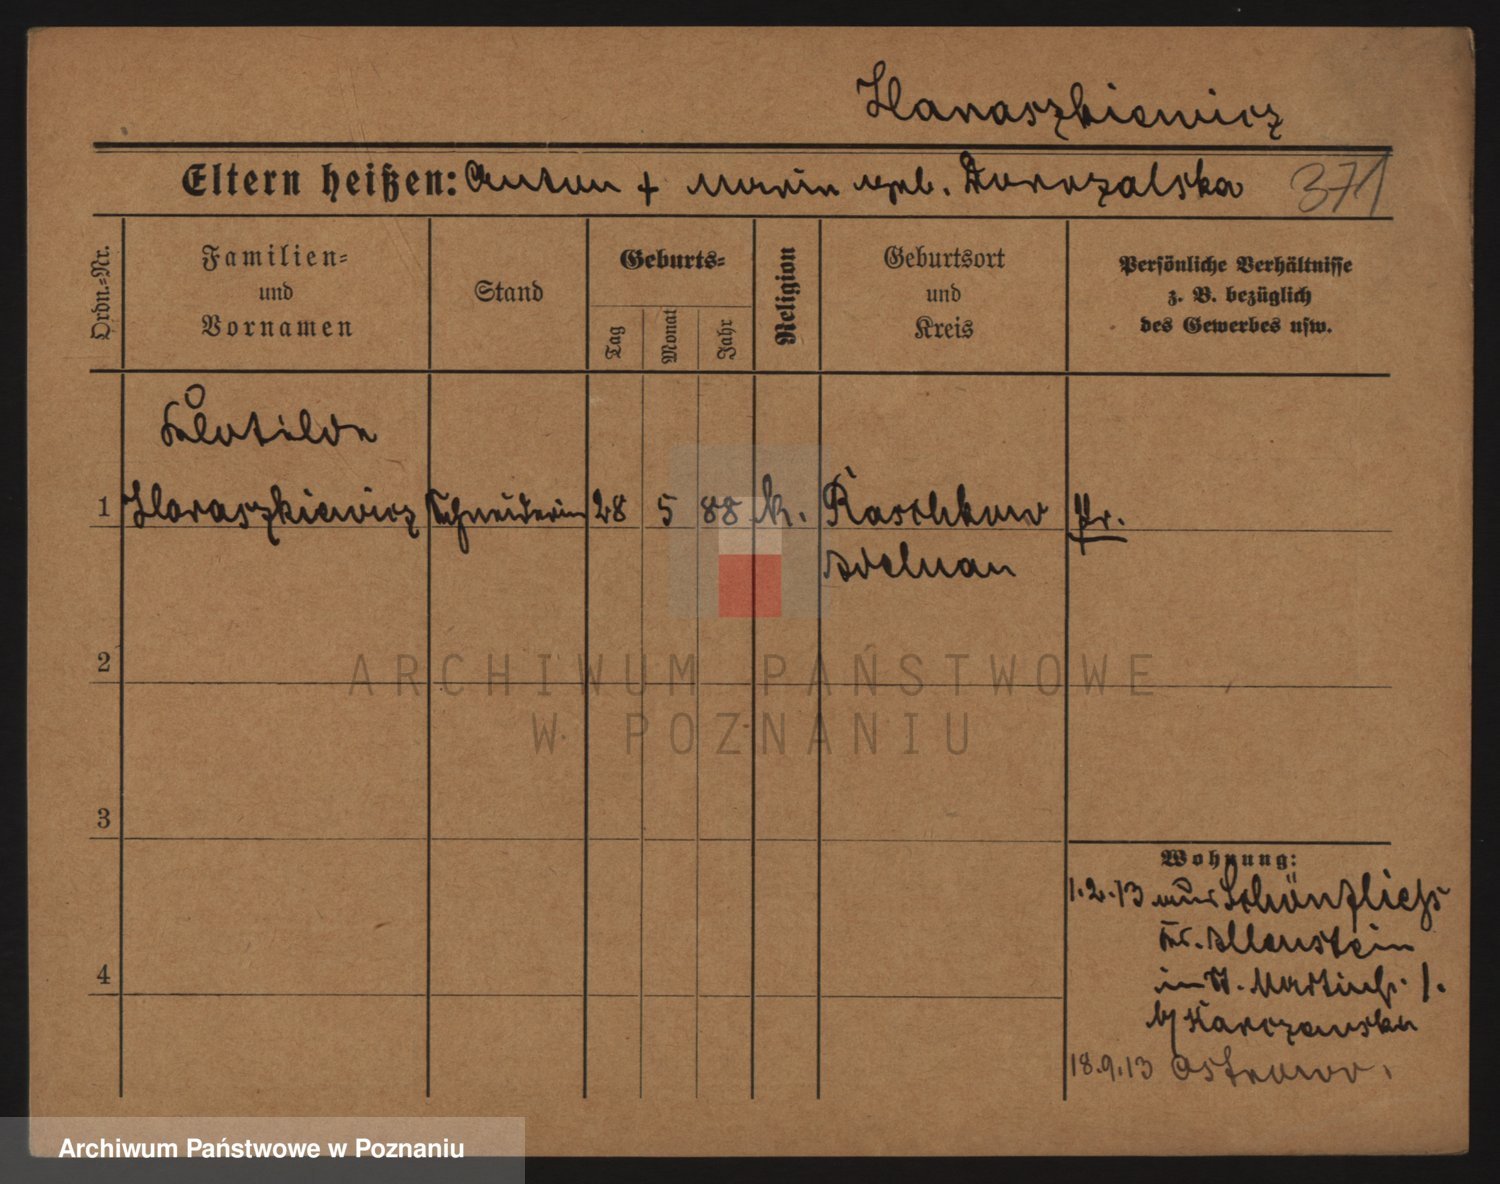 Haraszkiewicz
Eltern heißen: Anton + Marie geb. Doroszalska
371
Ordn.-Nr.
Familien-
und
Vornamen
Stand
Geburts-
Tag
Monat
Jahr
Religion
Geburtsort
und
Kreis
Persönliche Verhältnisse
z. B. bezüglich
des Gewerbes usw.
Klotilde
1 Haraszkiewicz Schneiderin 28 5 88 k. Raschkow Pr.
Adelnau
2
ARCHIWUM PAŃSTWOWE
W POZNANIU
3
Wohnung:
1.2.13 aus
Kr. Allenstein
in St. Martinstr. 1.
b/
4
18.9.13 Ostrowo.
Archiwum Państwowe w Poznaniu